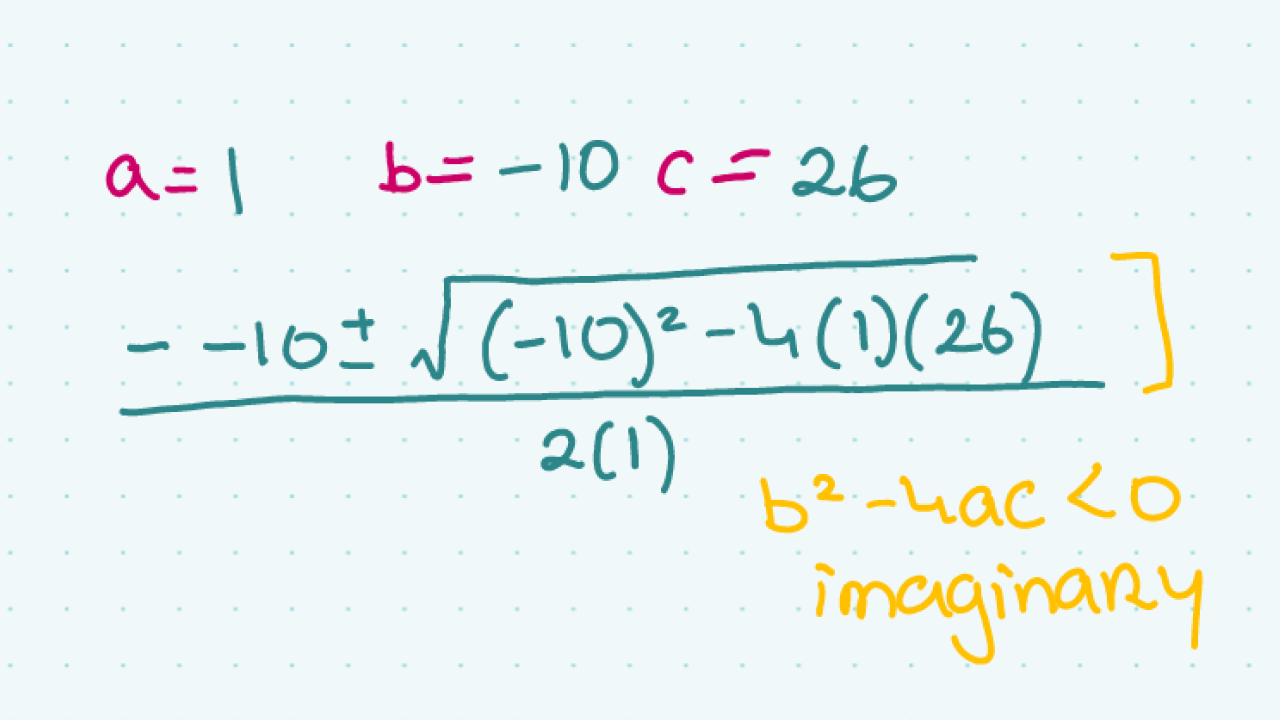 a = 1 b = -10 c = 26
- -10 ± √(-10)² - 4(1)(26) ]
2(1)
b² - 4ac < 0
imaginary